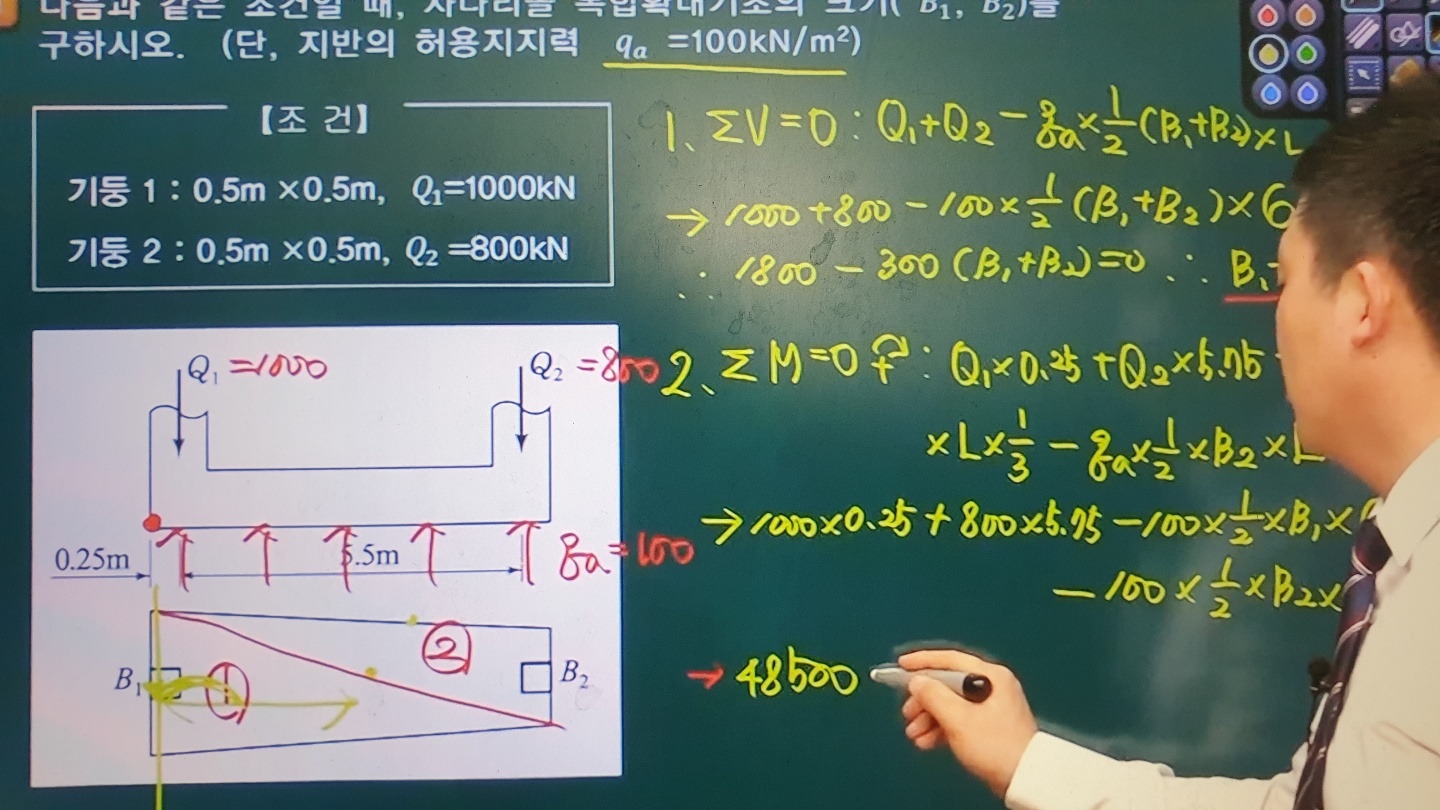 다음과 같은 조건일 때, 사다리꼴 복합확대기초의 크기( B₁, B₂)를
구하시오. (단, 지반의 허용지지력 qₐ =100kN/m²)
【조 건】
기둥 1 : 0.5m ×0.5m, Q₁=1000kN
기둥 2 : 0.5m ×0.5m, Q₂ =800kN
Q₁ =1000
Q₂ =800
0.25m
5.5m
qₐ=100
B₁
①
②
B₂
1. ΣV=0 : Q₁+Q₂ - qₐ×1/2(B₁+B₂)×L
→ 1000+800-100×1/2(B₁+B₂)×6
∴ 1800-300(B₁+B₂)=0 ∴ B₁
2. ΣM=0 ↷+ : Q₁×0.25+Q₂×5.75
×L×1/3 - qₐ×1/2×B₂×L
→ 1000×0.25+800×5.75-100×1/2×B₁×
-100×1/2×B₂×
→ 48500